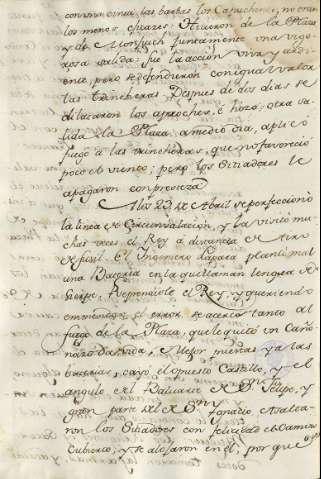 convenencia, las barbas los Capuchinos, ni eran
los menos eficazes. Hicieron de la Plaza
y de Monjuich juntamente una vigo-
rosa salida; fue la acción viva y ardi-
ente, pero se defendieron con igual valor
las trincheras. Despues de dos dias se
dilataron los aproches, e hizo otra sa-
lida la Plaza a medio dia, aplicó
fuego a las trincheras, que no favoreció
poco el viento; pero los Sitiadores le
apagaron con presteza
A los 23 de Abril se perfeccionó
la linea de Circunvalacion, y la visitó mu-
chas vezes el Rey a distancia de tiro
de fusil. El Ingeniero Lapara plantó mal
una Bateria en la que llaman lengua de
sierpe, Reprendiole el Rey, y queriendo
emmendar el error se acercó tanto al
fuego de la Plaza, que le quitó un Caño-
nazo la vida. Mejor puestas ya las
baterias, cayó el opuesto Castillo, y el
angulo del Baluarte de Sn. Felipe, y
gran parte del de Sn. Ignacio. Asaltea-
ron los Sitiadores con felicidad el Camino
Cubierto, y se alojaron en el, por que